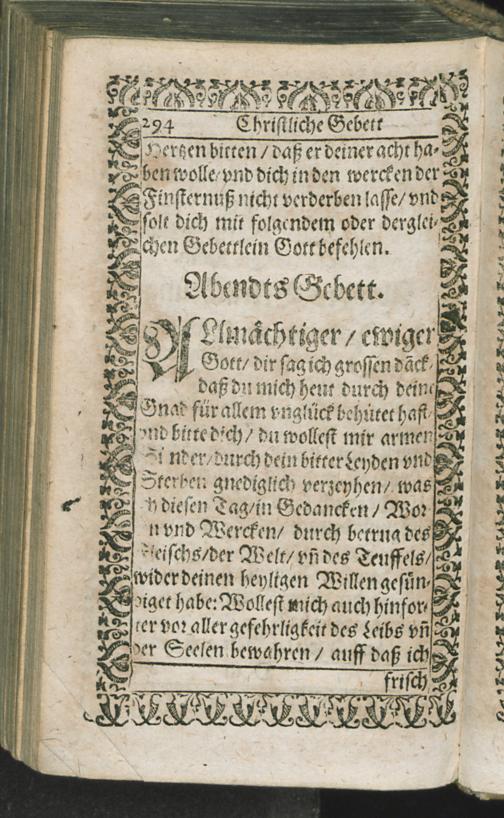 294 Christliche Gebett
Hertzen bitten / daß er deiner acht ha-
ben wolle / vnd dich in den wercken der
Finsternuß nicht verderben lasse / vnd
solt dich mit folgendem oder derglei-
chen Gebettlein Gott befehlen.
Abendts Gebett.
ALlmächtiger / ewiger
Gott / dir sag ich grossen dāck /
daß du mich heut durch deine
Gnad für allem vnglück behütet hast /
vnd bitte dich / du wollest mir armen
Sünder / durch dein bitter Leyden vnd
Sterben gnediglich verzeyhen / was
ich diesen Tag / in Gedancken / Wor-
n vnd Wercken / durch betrug des
Fleischs / der Welt / vñ des Teuffels /
wider deinen heyligen Willen gesün-
diget habe: Wollest mich auch hinfor-
ter vor aller gefehrligkeit des Leibs vñ
der Seelen bewahren / auff daß ich
frisch